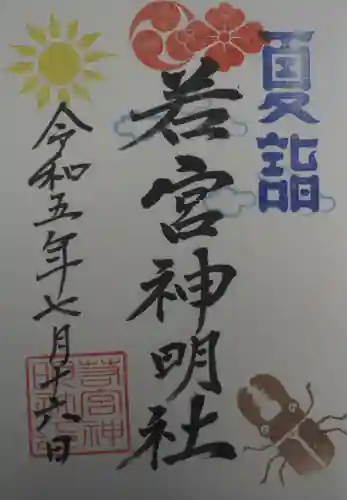 夏詣
若宮神明社
令和五年七月十六日
若宮神
明社